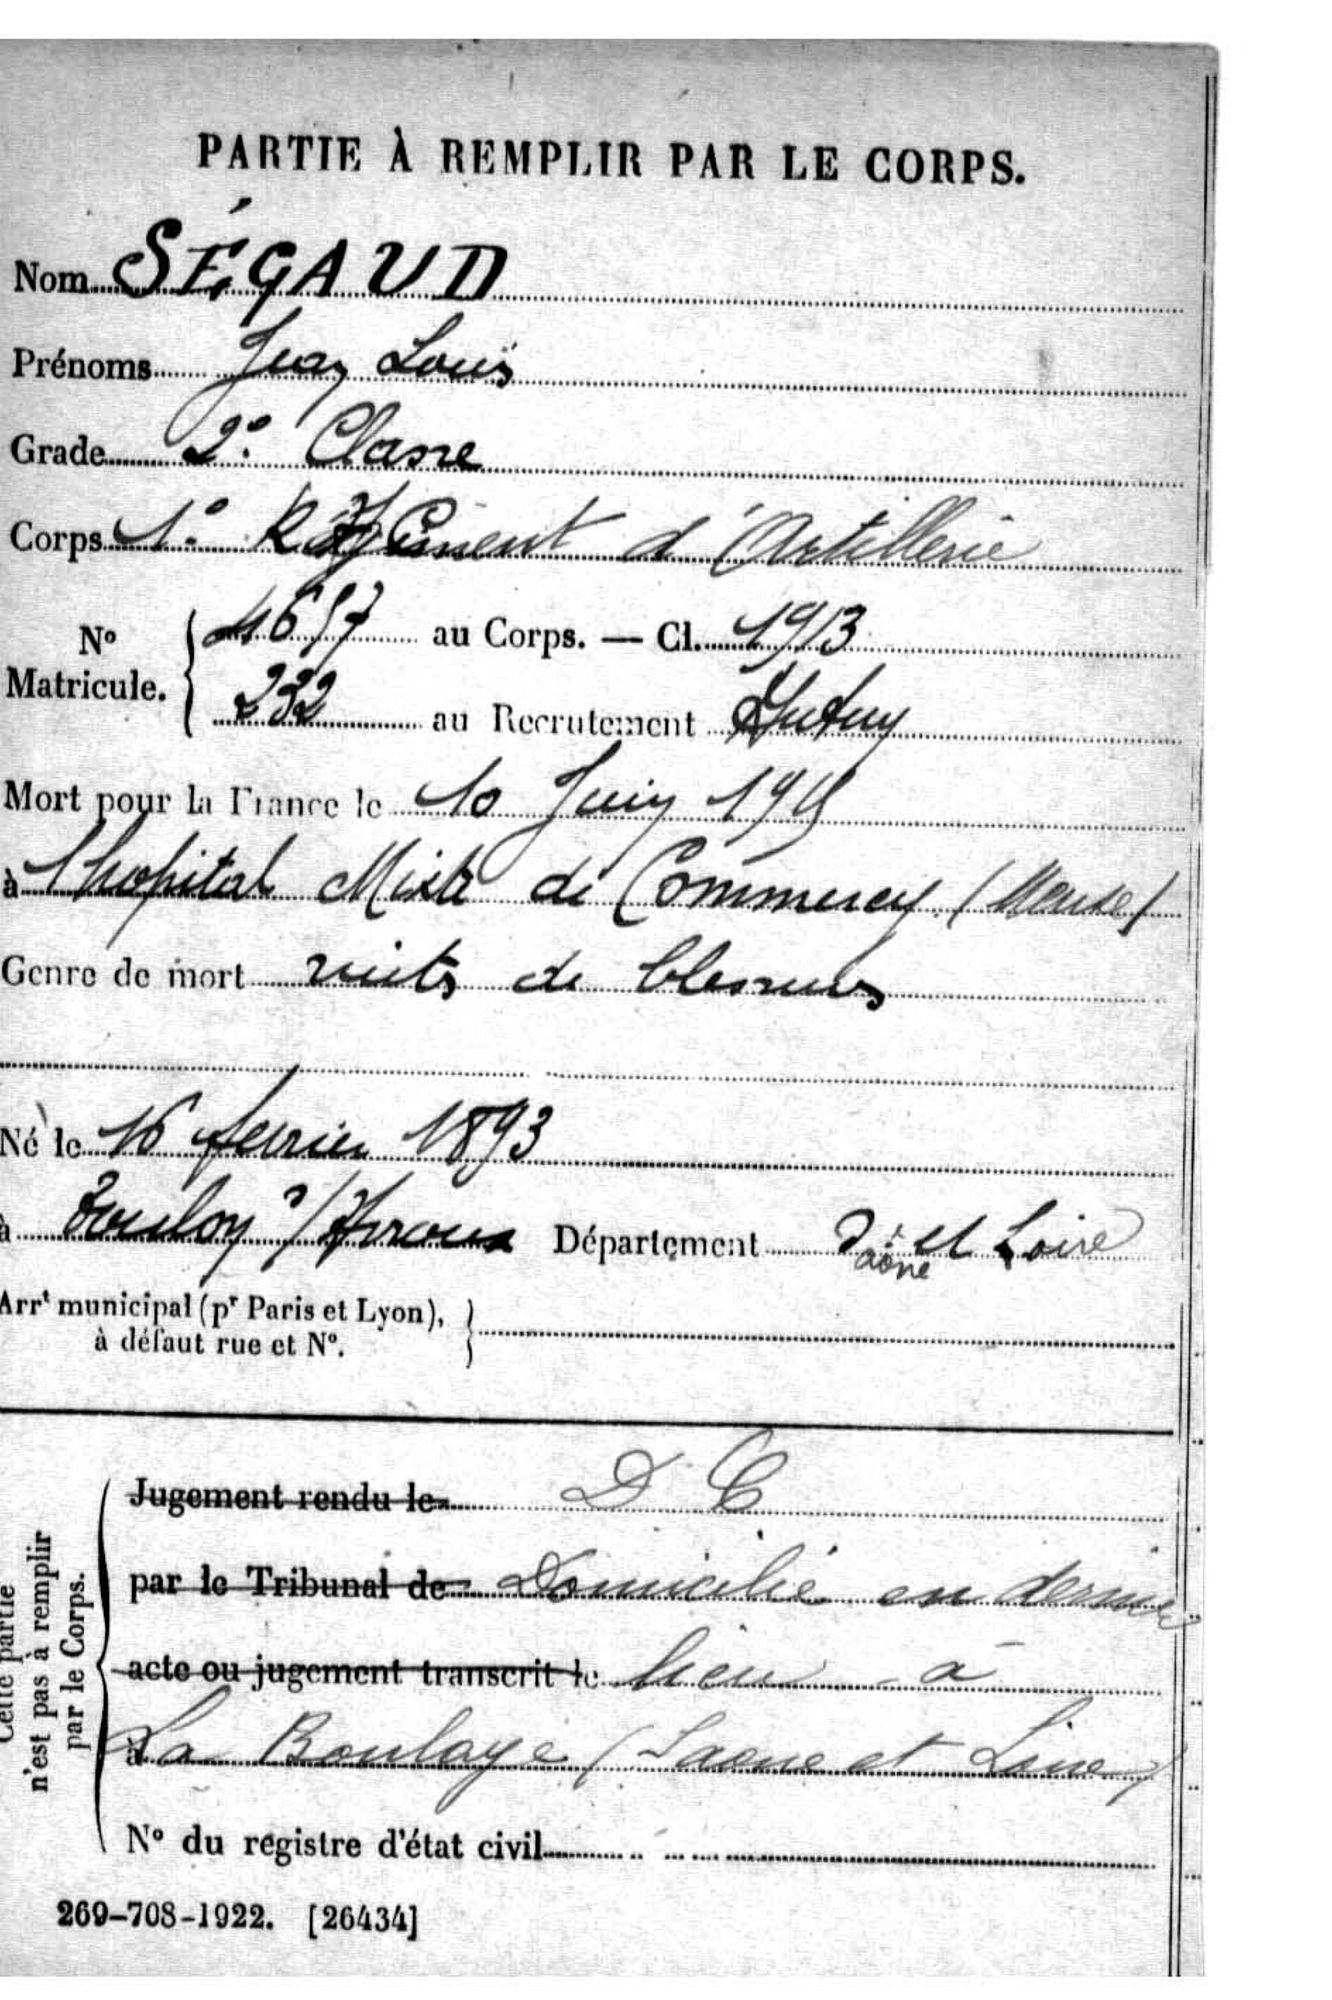 PARTIE À REMPLIR PAR LE CORPS.
Nom SÉGAUD
Prénoms Jean Louis
Grade 2e Classe
Corps 1e Régiment d'Artillerie
No Matricule. 4617 au Corps. — Cl. 1913
232 au Recrutement Autun
Mort pour la France le 10 Juin 1915
à l'hopital Mixte de Commercy (Meuse)
Genre de mort suites de blessures
Né le 16 février 1893
à Toulon s/Arroux Département S. et Loire
aône
Arrt municipal (pr Paris et Lyon),
à défaut rue et No.
Cette partie
n'est pas à remplir
par le Corps.
Jugement rendu le D C
par le Tribunal de Domicilié en dernier
acte ou jugement transcrit le lieu à
à La Boulaye (Saone et Loire)
No du registre d'état civil
269-708-1922. [26434]